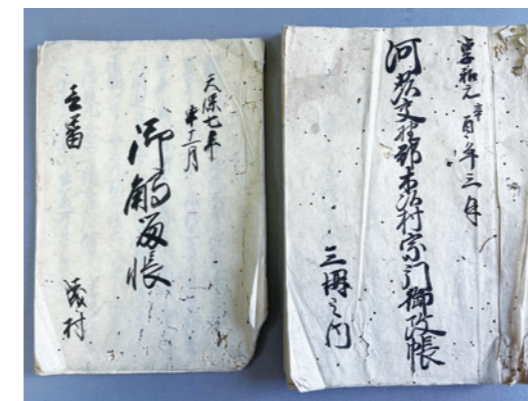 享和元辛酉年三月
河州交野郡村宗門御改帳
三冊之内
天保七年
申十二月
御触留帳
壱番
村